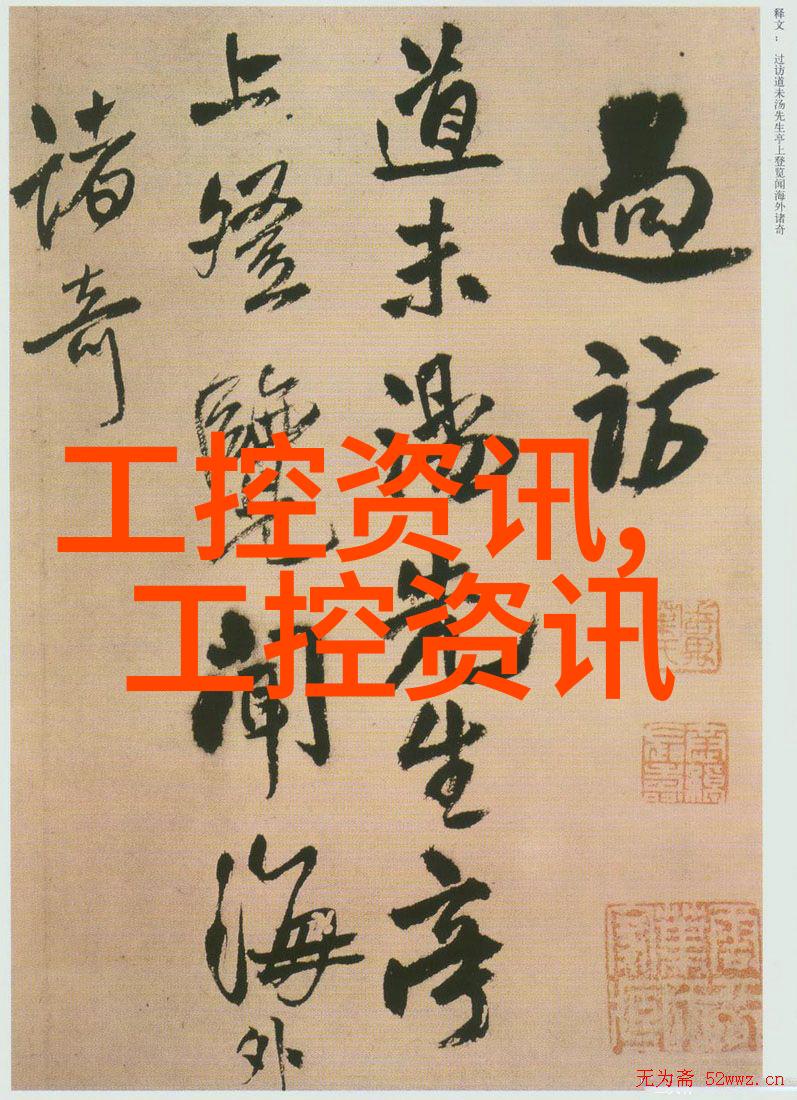 释文： 过访道未汤先生亭上登览闻海外诸奇
過訪
道未湯先生亭
上登覽聞海外
諸奇
工控资讯,
工控资讯
无为斋 52wwz.cn